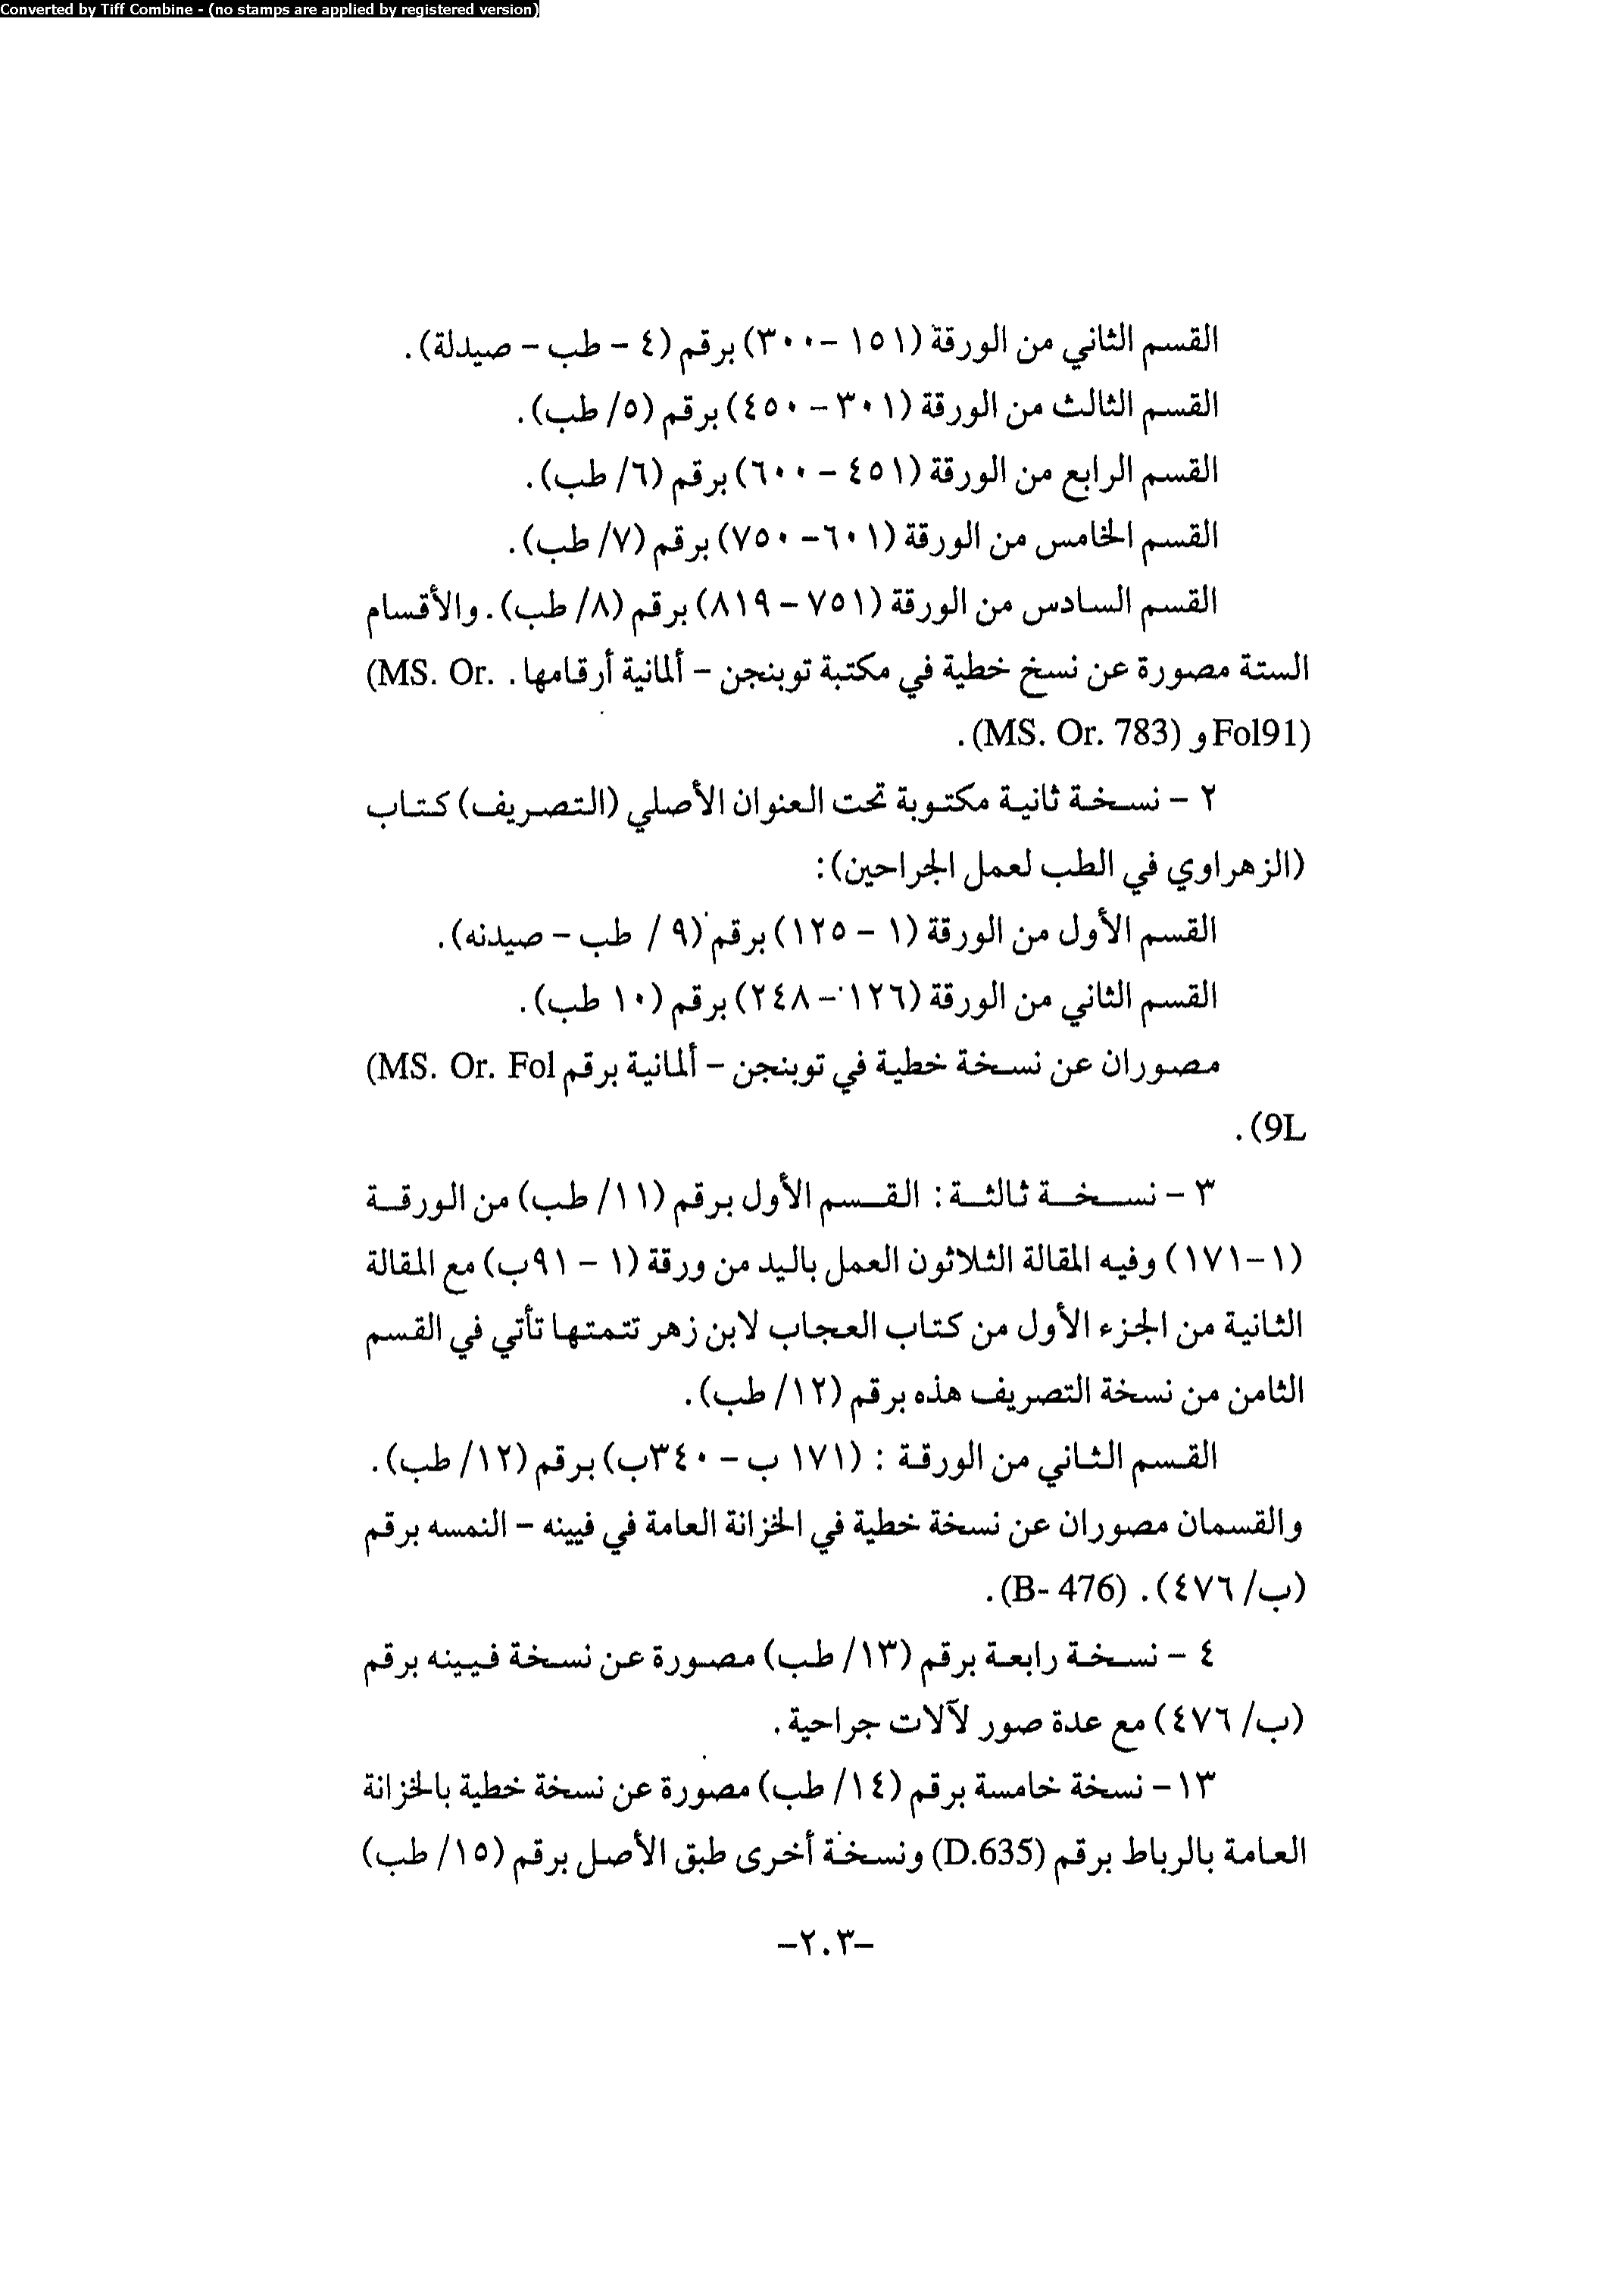 Converted by Tiff Combine - (no stamps are applied by registered version)
القسم الثاني من الورقة (١٥١ -٣٠٠) برقم (٤ – طب – صيدلة).
القسم الثالث من الورقة (٣٠١ – ٤٥٠) برقم (٥/ طب).
القسم الرابع من الورقة (٤٥١ – ٦٠٠) برقم (٦/ طب).
القسم الخامس من الورقة (٦٠١– ٧٥٠) برقم (٧/ طب).
القسم السادس من الورقة (٧٥١ – ٨١٩) برقم (٨/ طب). والأقسام
الستة مصورة عن نسخ خطية في مكتبة توبنجن – ألمانية أرقامها . (MS. Or.
Fol91) و (MS. Or. 783).
٢ – نسخة ثانية مكتوبة تحت العنوان الأصلي (التصريف) كتاب
(الزهراوي في الطب لعمل الجراحين):
القسم الأول من الورقة (١ – ١٢٥) برقم (٩ / طب – صيدنه).
القسم الثاني من الورقة (١٢٦ – ٢٤٨) برقم (١٠ طب).
مصوران عن نسخة خطية في توبنجن – ألمانية برقم (MS. Or. Fol
9L).
٣ – نسخة ثالثة: القسم الأول برقم (١١/ طب) من الورقة
(١-١٧١) وفيه المقالة الثلاثون العمل باليد من ورقة (١ – ٩١ب) مع المقالة
الثانية من الجزء الأول من كتاب العجاب لابن زهر تتمتها تأتي في القسم
الثامن من نسخة التصريف هذه برقم (١٢/ طب).
القسم الثاني من الورقة : (١٧١ ب – ٣٤٠ب) برقم (١٢/ طب).
والقسمان مصوران عن نسخة خطية في الخزانة العامة في فيينه – النمسه برقم
(ب/ ٤٧٦). (B- 476).
٤ – نسخة رابعة برقم (١٣/ طب) مصورة عن نسخة فيينه برقم
(ب/ ٤٧٦) مع عدة صور لآلات جراحية.
١٣– نسخة خامسة برقم (١٤/ طب) مصورة عن نسخة خطية بالخزانة
العامة بالرباط برقم (D.635) ونسخة أخرى طبق الأصل برقم (١٥/ طب)
–٢٠٣–